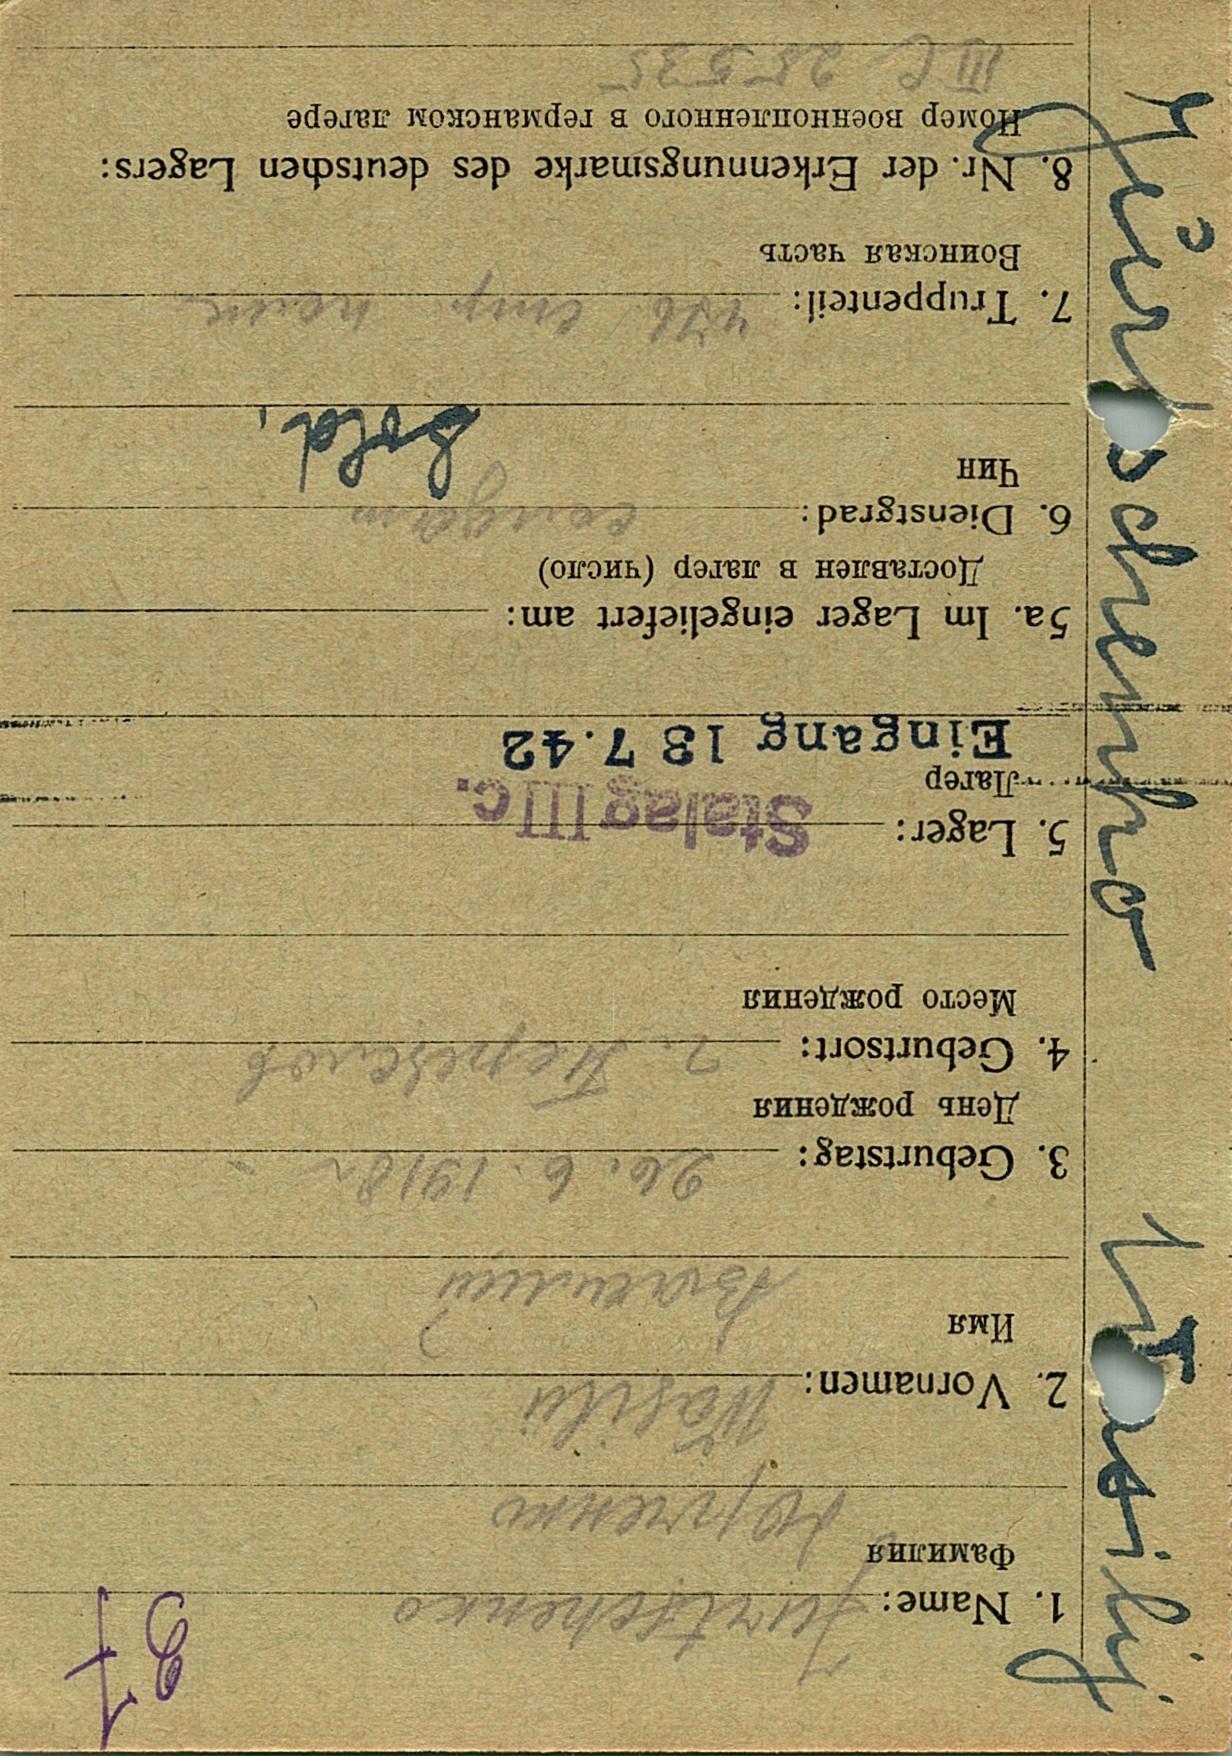 97
1. Name: Jurtschenko
Фамилия
Юрченко
2. Vornamen: Wasilii
Имя
Василий
3. Geburtstag: 26. 6. 1918
День рождения
4. Geburtsort:
Место рождения
5. Lager: Stalag III c.
Лагер
Eingang 13 7.42
5a. Im Lager eingeliefert am:
Доставлен в лагер (число)
6. Dienstgrad: солдат
Чин
Sold.
7. Truppenteil: стр полк
Воинская часть
8. Nr. der Erkennungsmarke des deutschen Lagers:
Номер военнопленного в германском лагере
III C 25535
Jurtschenko Wasilij